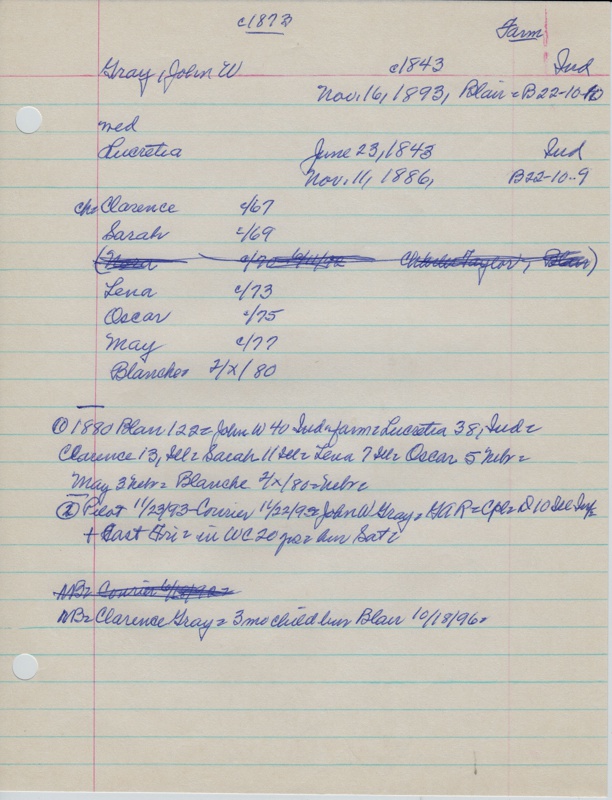 c1873
Farm
Gray, John W c1843 Ind
Nov. 16, 1893, Blair = B22-10-10
med
Lucretia June 23, 1843 Ind
Nov. 11, 1886, B22-10-9
ch= Clarence c/67
Sarah c/69
(Nora c/70 Charles Taylor, Blair)
Lena c/73
Oscar c/75
May c/77
Blanche= 2/x/80
① 1880 Blair 122= John W 40 Ind=farm= Lucretia 38, Ind=
Clarence 13, Ill= Sarah 11 Ill= Lena 7 Ill= Oscar 5 Nebr=
May 3 Nebr= Blanche 2/x/80=Nebr=
② Pilot 11/23/93-Courier 11/22/93= John W Gray= GAR= Cpl= D 10 Ill Inf=
+ Last Fri= in WC 20 yrs= bur Sat=
NB= Courier
NB= Clarence Gray= 3 mo child bur Blair 10/18/96=